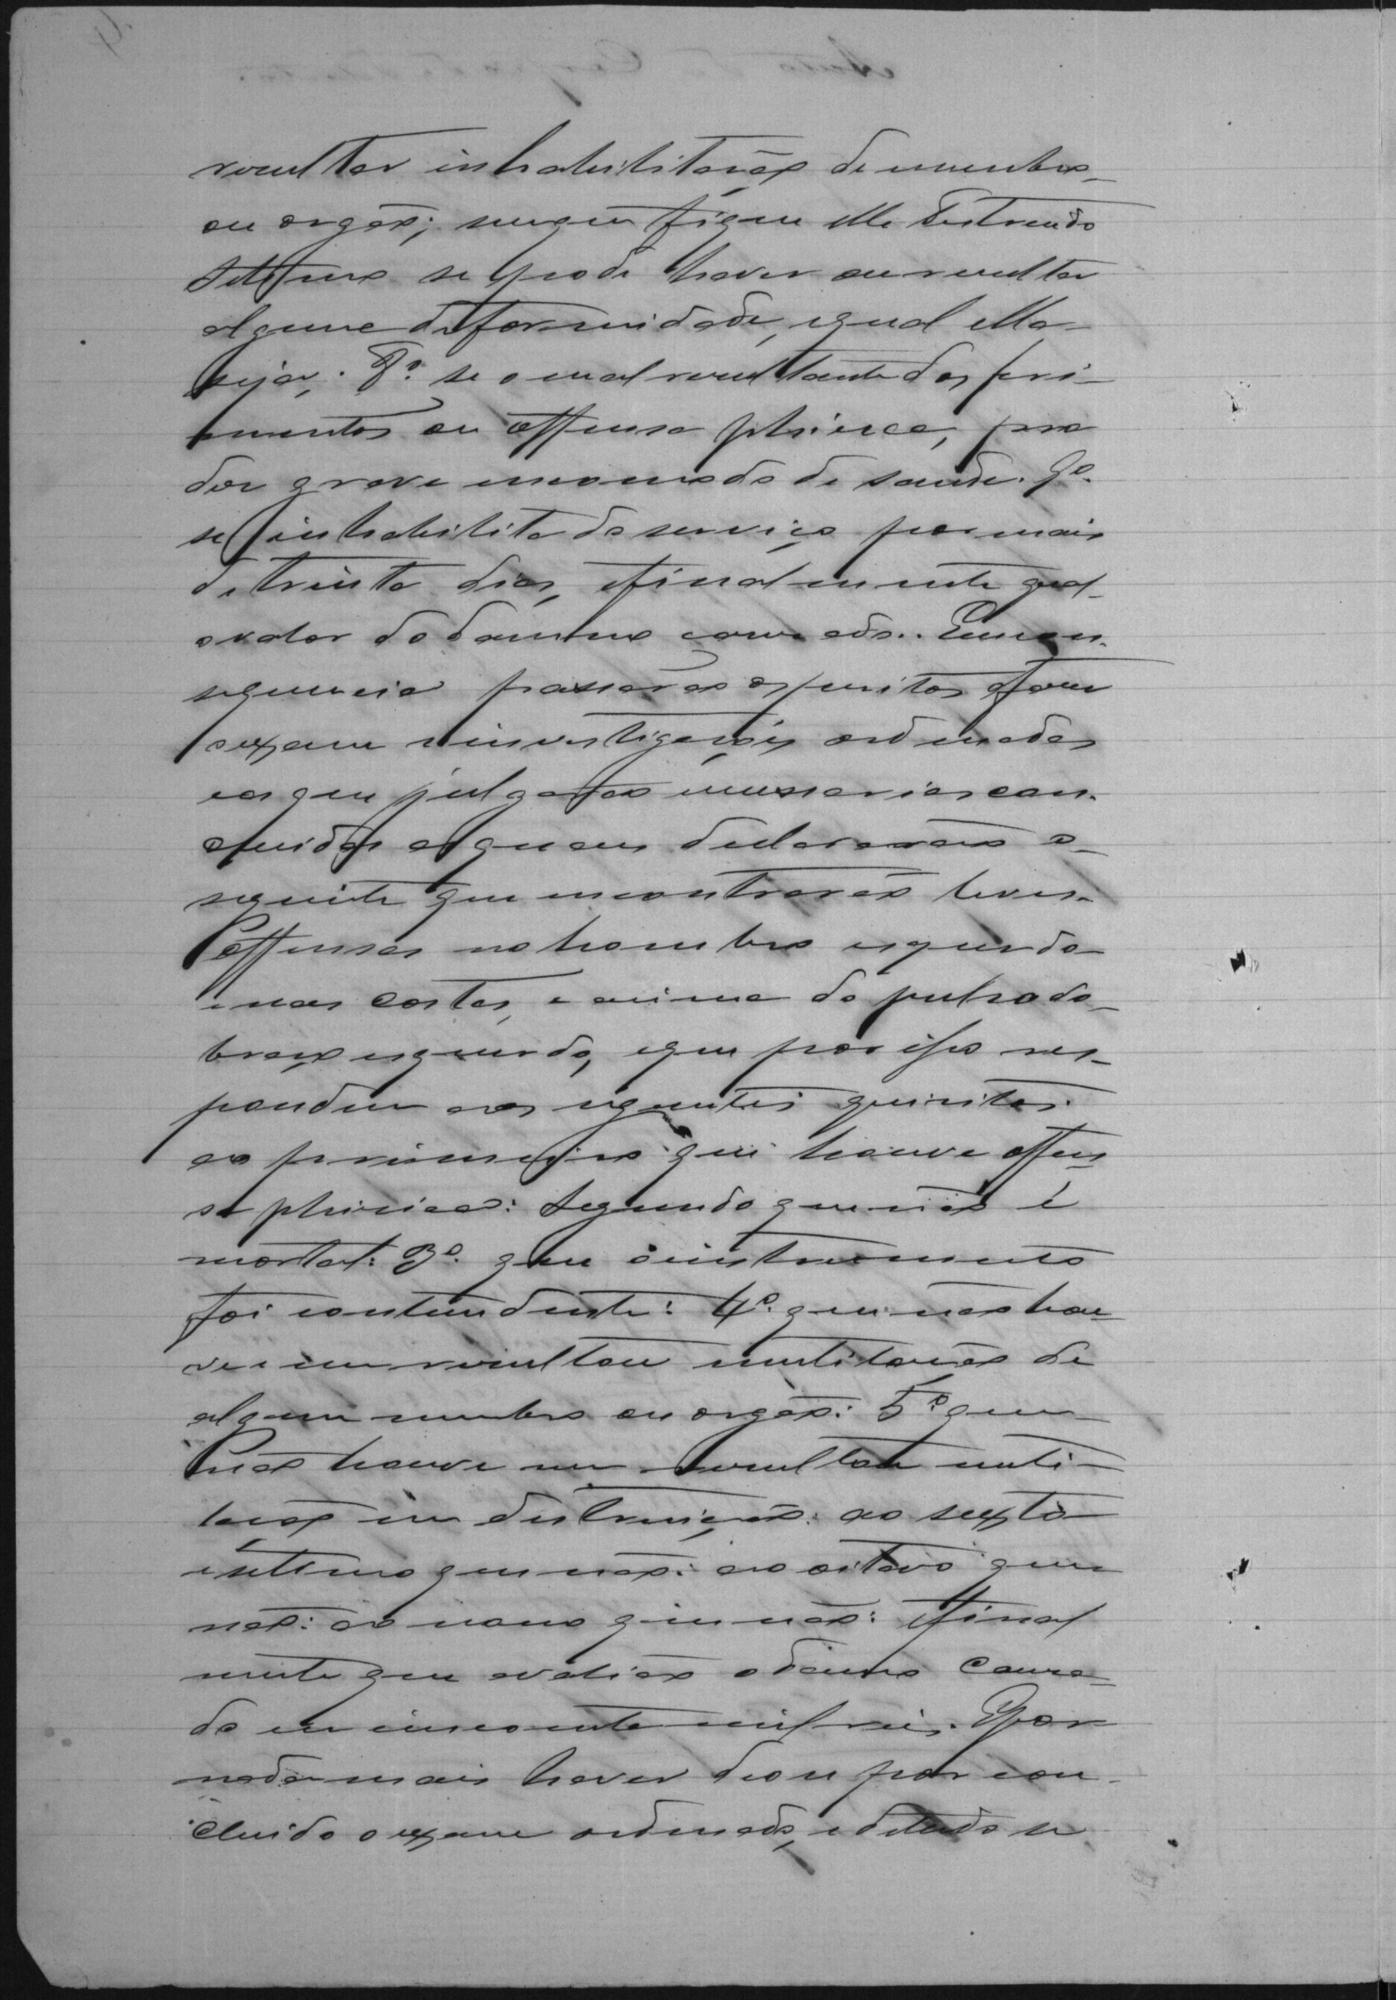 resultar inhabilitação de membro
ou orgão; sem que fique elle destruido
settimo se pode haver ou resultar
alguma deformidade, e qual ella
seja; 8º se o mal resultante dos feri-
mentos ou offensa phisica, pro
duz grave incommodo de saude. 9º
se inhabilita do serviço por mais
de trinta dias, e finalmente qual
o valor do damno causado. Em con-
sequencia passarão os peritos a fazer
exame e investigações ordenadas
e as que julgarão necessarias con-
cluidas as quaes declararão o
seguinte que encontrarão leves
offensas no hombro esquerdo
e nas costas, e acima do pulso do
braço esquerdo, e que por isso res-
pondem aos seguintes quisitos:
ao primeiro que houve offen
sa phisica: segundo que não é
mortal: 3º que o instrumento
foi contundente: 4º que não hou
ve e nem resultou mutilação de
algum membro ou orgão: 5º que
não houve nem resultou muti-
lação em destruição: ao sexto
e settimo que não: ao oitavo que
não: ao nono que não: e final
mente que avalião o damno causa-
do em cincoenta mil reis. E por
nada mais haver deou por con-
cluido o exame ordenado, e de tudo se